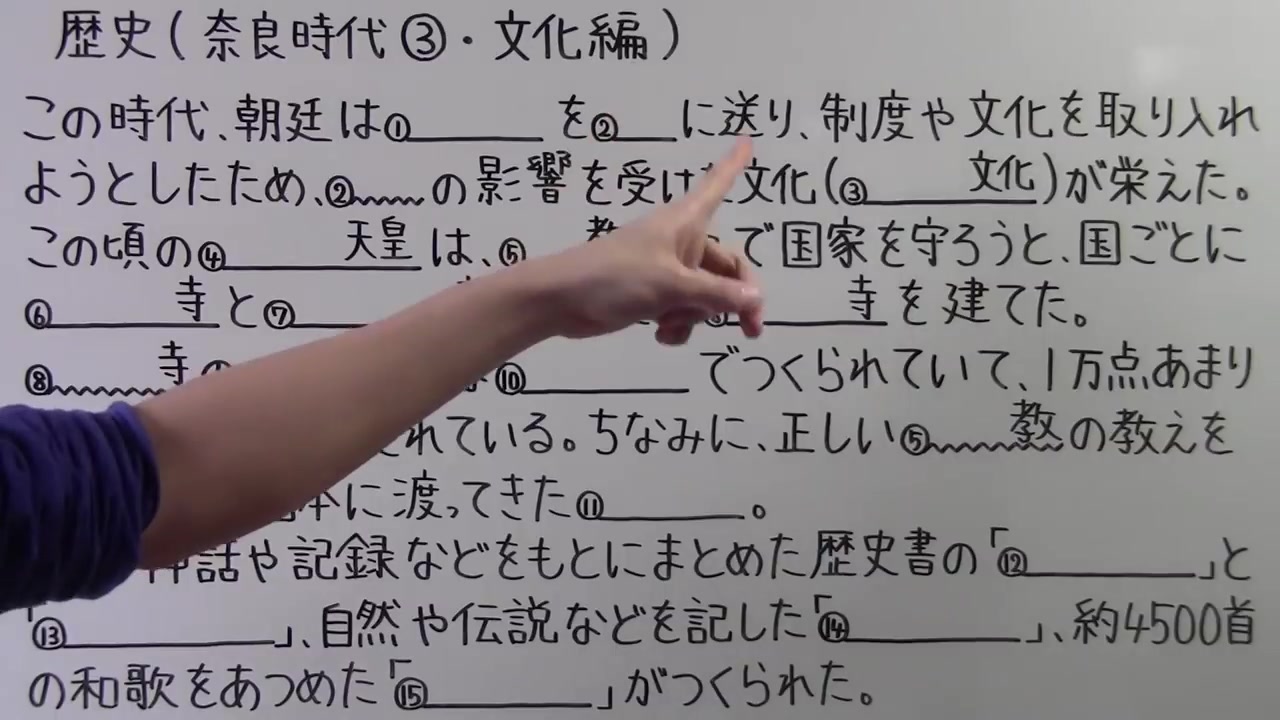 歴史(奈良時代③・文化編)
この時代、朝廷は①______を②___に送り、制度や文化を取り入れ
ようとしたため、②﹏﹏の影響を受けた文化(③______文化)が栄えた。
この頃の④______天皇は、⑤ 教 で国家を守ろうと、国ごとに
⑥______寺と⑦______ 寺を建てた。
⑧﹏﹏寺の ⑩______でつくられていて、1万点あまり
れている。ちなみに、正しい⑤﹏﹏教の教えを
本に渡ってきた⑪______。
神話や記録などをもとにまとめた歴史書の「⑫______」と
「⑬______」、自然や伝説などを記した「⑭______」、約4500首
の和歌をあつめた「⑮______」がつくられた。